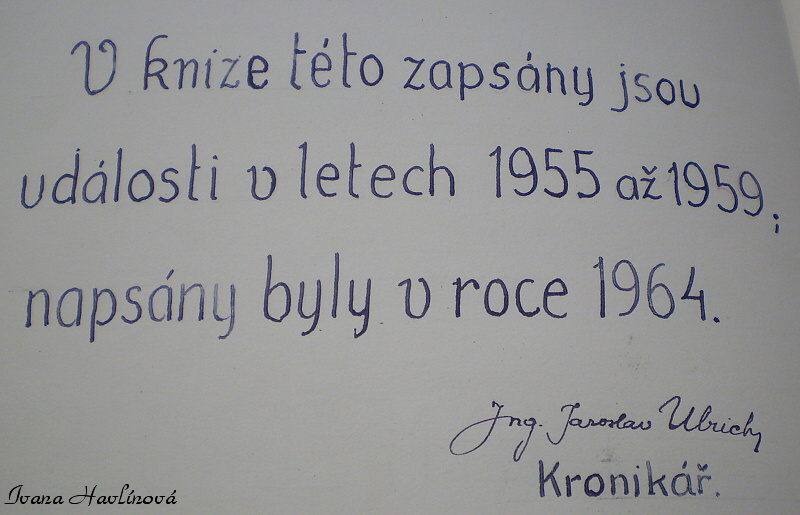 V knize této zapsány jsou
události v letech 1955 až 1959;
napsány byly v roce 1964.
Ing. Jaroslav Ulrich
Kronikář.
Ivana Havlínová